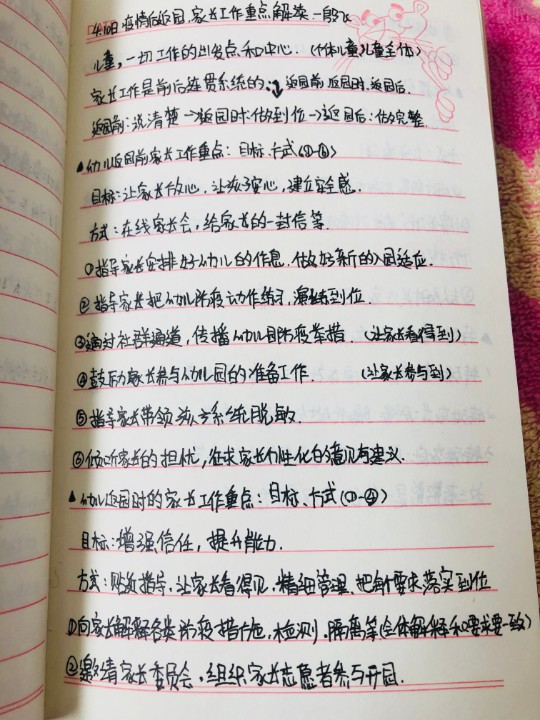 4.10日 疫情后返园,家长工作重点解读.一般
儿童,一切工作的出发点和中心.(个体儿童儿童全体)
家长工作是前后连贯系统的:返园前 返园时.返园后.
返园前:说清楚→返园时:做到位→返园后:做完整.
▲幼儿返园前家长工作重点:目标.方式(①-⑥)
目标:让家长放心,让孩子安心,建立安全感.
方式:在线家长会,给家长的一封信等.
①指导家长安排好幼儿的作息.做好新的入园适应.
②指导家长把幼儿防疫动作练习,演练到位.
③通过社群通道,传播幼儿园防疫举措.(让家长看得到)
④鼓励家长参与幼儿园的准备工作.(让家长参与到)
⑤指导家长带领孩子系统脱敏.
⑥倾听家长的担忧,征求家长个性化的意见与建议.
▲幼儿返园时的家长工作重点:目标、方式(①-④)
目标:增强信任,提升能力.
方式:贴放指导,让家长看得见,精细管理.把每个要求落实到位
①向家长解释各类防疫措施,检测.隔离等(全体解释和要求要一致)
②邀请家长委员会.组织家长志愿者参与开园.